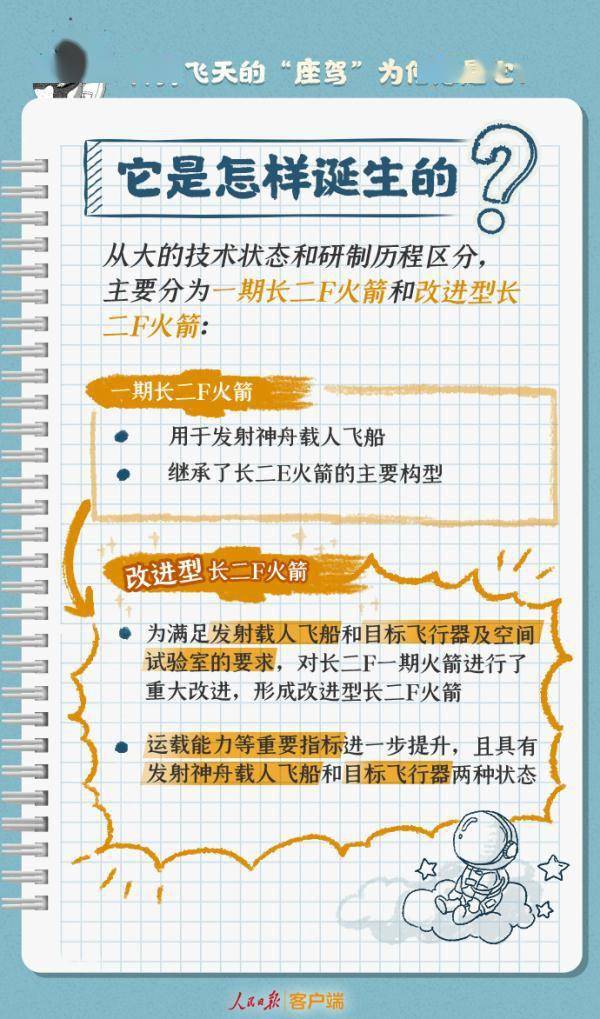 飞天的“座驾”为
它是怎样诞生的?
从大的技术状态和研制历程区分，
主要分为一期长二F火箭和改进型长
二F火箭:
一期长二F火箭
用于发射神舟载人飞船
继承了长二E火箭的主要构型
改进型 长二F火箭
为满足发射载人飞船和目标飞行器及空间
试验室的要求，对长二F一期火箭进行了
重大改进，形成改进型长二F火箭
运载能力等重要指标进一步提升，且具有
发射神舟载人飞船和目标飞行器两种状态
人民日报 客户端